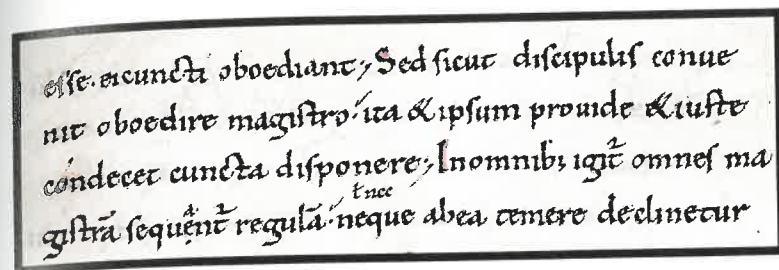 esse. ei cuncti oboediant; Sed sicut discipulis conue
nit oboedire magistro. ita & ipsum prouide & iuste
condecet cuncta disponere; In omnib; igit̄ omnes ma
gistrā sequent̄ regulā. neque ab ea temere declinetur